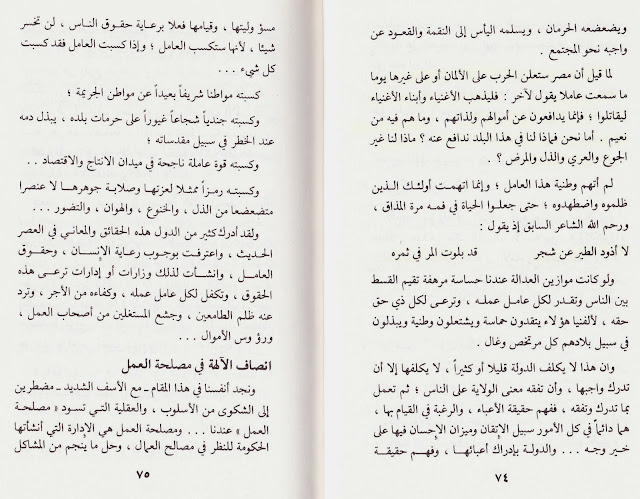 ويضعضعه الحرمان ، ويسلمه اليأس إلى النقمة والقعود عن
واجبه نحو المجتمع .
لما قيل أن مصر ستعلن الحرب على الألمان أو على غيرها يوما
ما سمعت عاملا يقول لآخر : فليذهب الأغنياء وأبناء الأغنياء
ليقاتلوا ؛ فإنما يدافعون عن أموالهم ولذاتهم ، وما هم فيه من
نعيم . أما نحن فماذا لنا في هذا البلد ندافع عنه ؟ ماذا لنا غير
الجوع والعري والذل والمرض ؟ .
لم أتهم وطنية هذا العامل ؛ وإنما اتهمت أولئك الذين
ظلموه واضطهدوه ؛ حتى جعلوا الحياة في فمه مرة المذاق ،
ورحم الله الشاعر السابق إذ يقول :
لا أذود الطير عن شجر قد بلوت المر في ثمره
ولو كانت موازين العدالة عندنا حساسة مرهفة تقيم القسط
بين الناس وتقدر لكل عامل عمله ، وترعى لكل ذي حق
حقه ، لألفينا هؤلاء يتقدون حماسة ويشتعلون وطنية ويبذلون
في سبيل بلادهم كل مرتخص وغال .
وان هذا لا يكلف الدولة قليلا أو كثيراً ، لا يكلفها إلا أن
تدرك واجبها ، وأن تفقه معنى الولاية على الناس ؛ ثم تعمل
بما تدرك وتفقه ، ففهم حقيقة الأعباء ، والرغبة في القيام بها ،
هما دائماً في كل الأمور سبيل الإتقان وميزان الإحسان فيها على
خير وجه ... والدولة بإدراك أعبائها ، وفهم حقيقة
٧٤
مسؤوليتها ، وقيامها فعلا برعاية حقوق الناس ، لن تخسر
شيئا ، لأنها ستكسب العامل ؛ وإذا كسبت العامل فقد كسبت
كل شيء ...
كسبته مواطنا شريفاً بعيداً عن مواطن الجريمة ؛
وكسبته جندياً شجاعاً غيوراً على حرمات بلده ، يبذل دمه
عند الخطر في سبيل مقدساته ؛
وكسبته قوة عاملة ناجحة في ميدان الانتاج والاقتصاد . .
وكسبته رمزاً ممثلا لعزتها وصلابة جوهرها لا عنصرا
متضعضعا من الذل ، والخنوع ، والهوان ، والتضور ...
ولقد أدرك كثير من الدول هذه الحقائق والمعاني في العصر
الحديث ، واعترفت بوجوب رعاية الإنسان ، وحقوق
العامل ، وانشأت لذلك وزارات أو إدارات ترعى هذه
الحقوق ، وتكفل لكل عامل عمله ، وكفاءه من الأجر ، وترد
عنه ظلم الطامعين ، وجشع المستغلين من أصحاب العمل ،
ورؤوس الأموال ...
انصاف الآلهة في مصلحة العمل
ونجد أنفسنا في هذا المقام ـ مع الأسف الشديد ـ مضطرين
إلى الشكوى من الأسلوب ، والعقلية التي تسود « مصلحة
العمل » عندنا ... ومصلحة العمل هي الإدارة التي أنشأتها
الحكومة للنظر في مصالح العمال ، وحل ما ينجم من المشاكل
٧٥